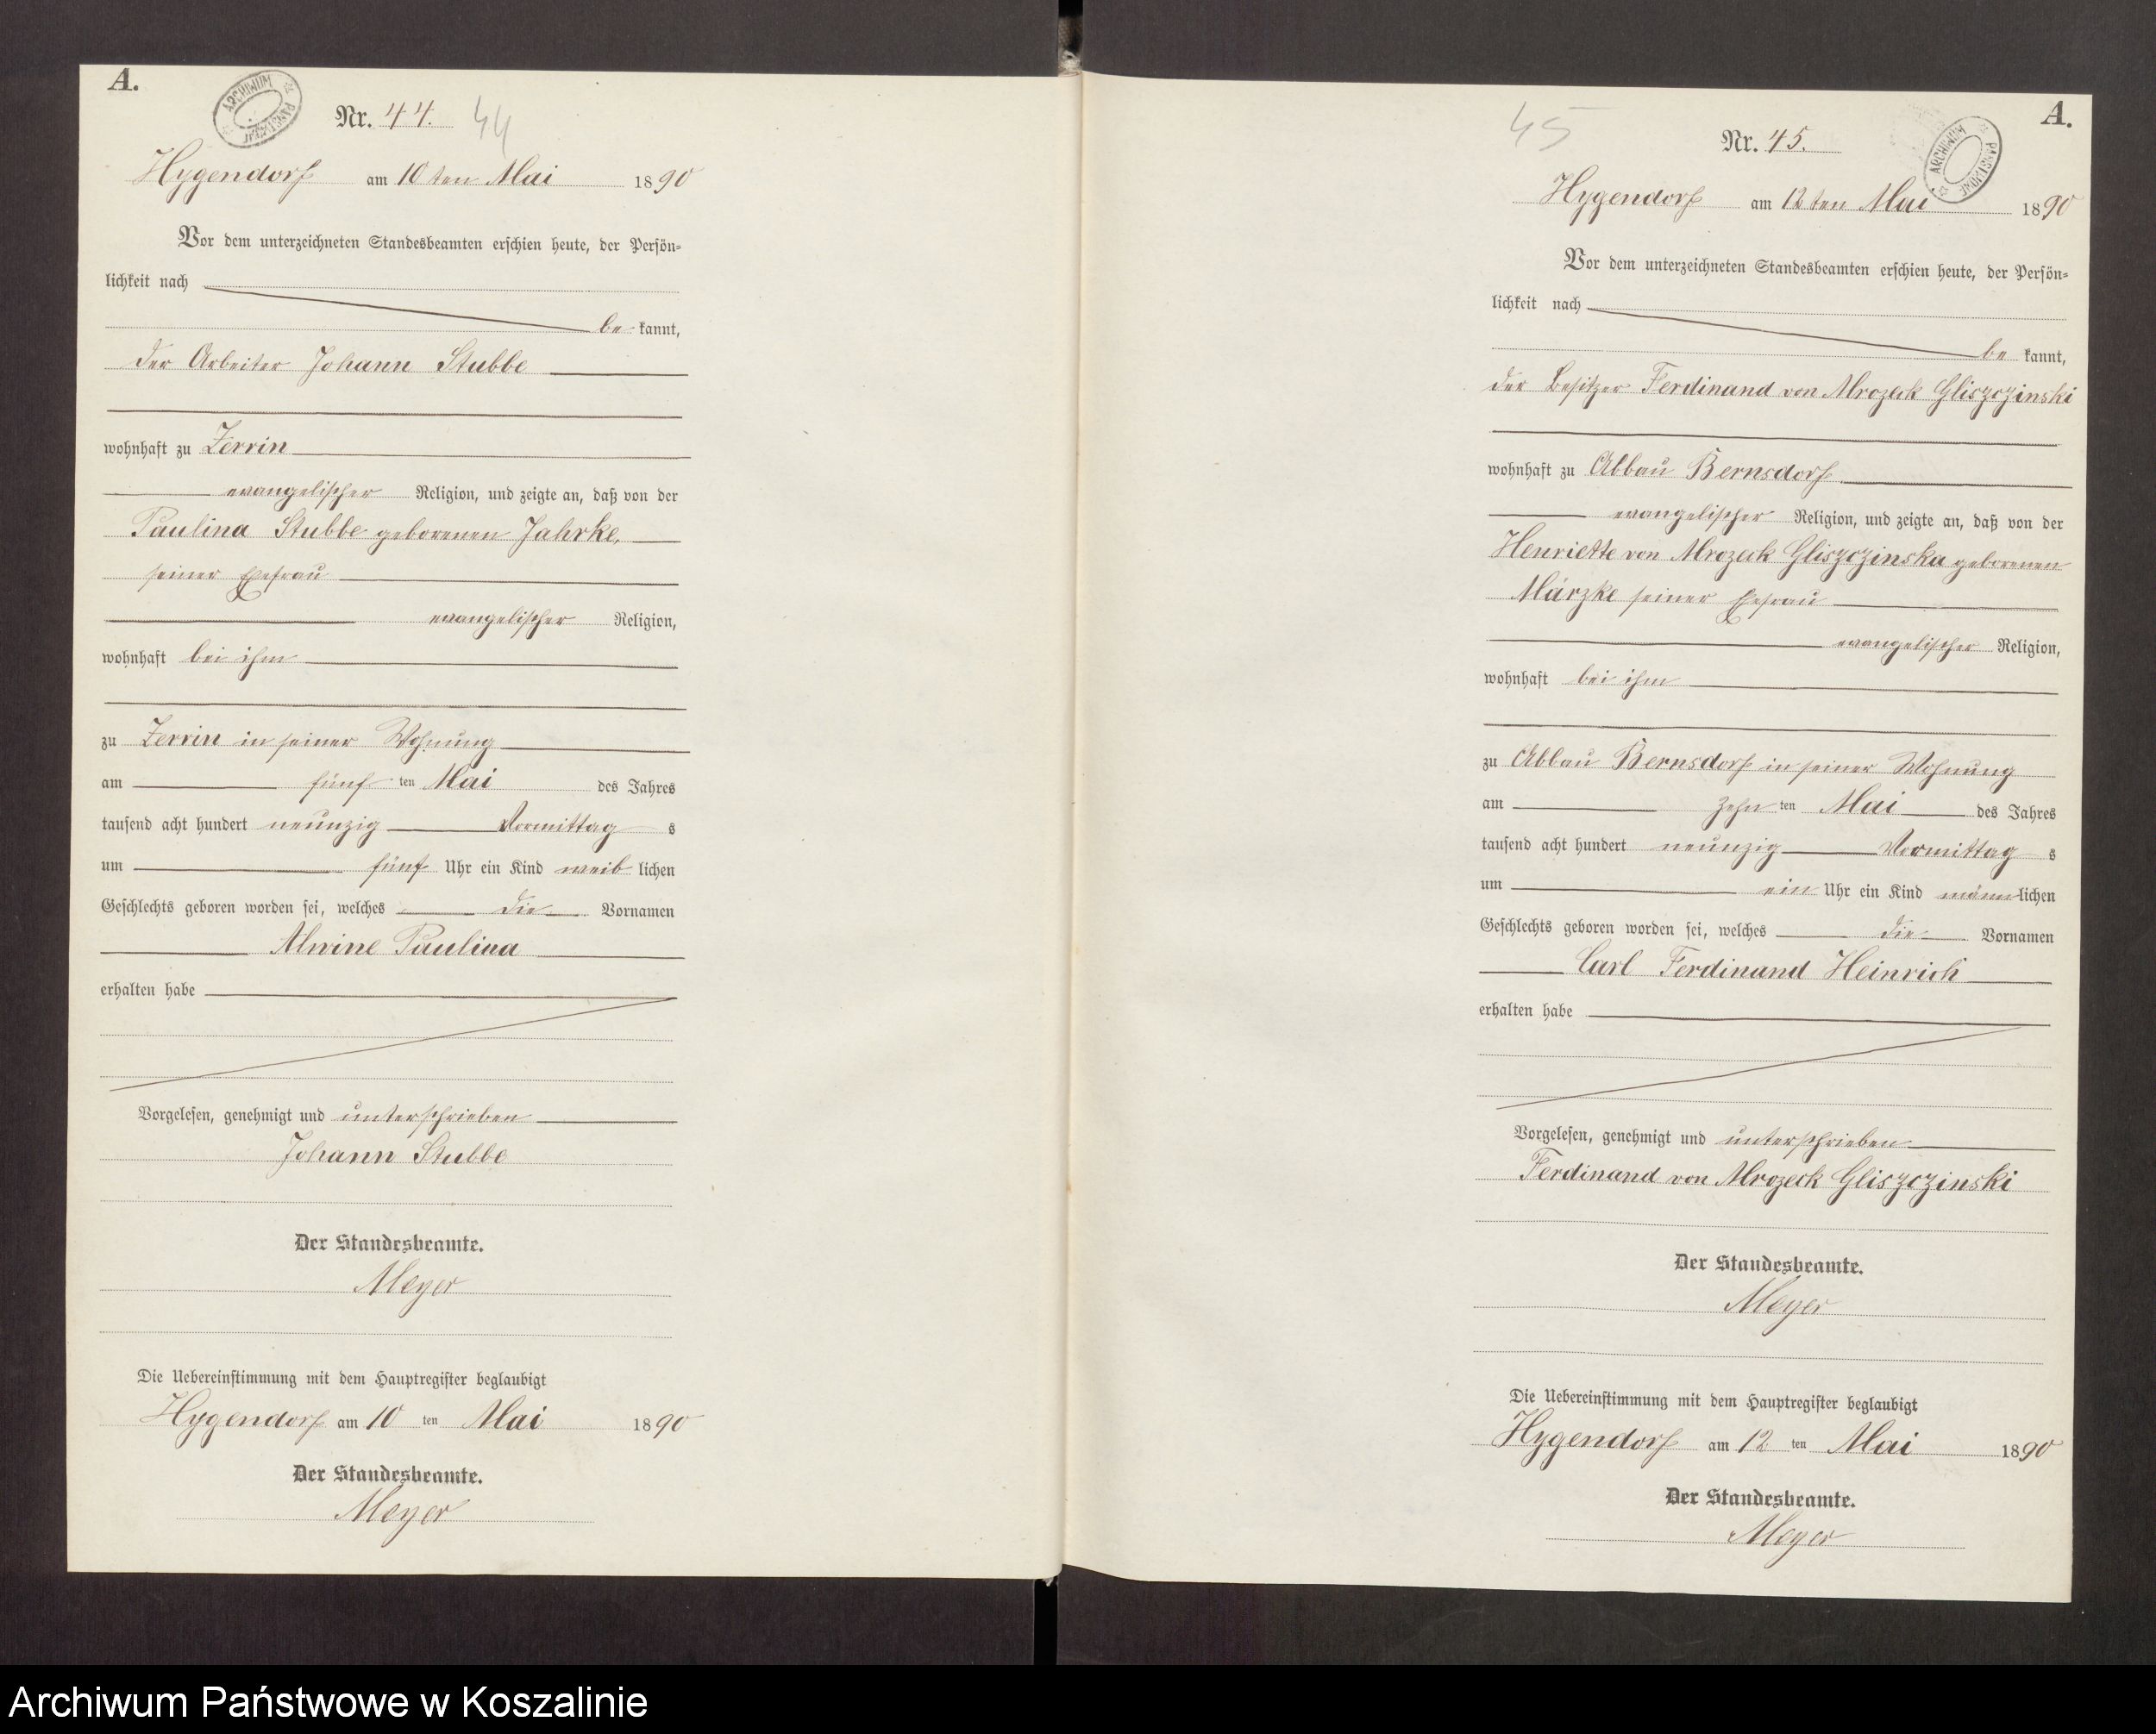 A.
ARCHIWUM PAŃSTWOWE
Nr. 44. 44
Hygendorf am 10 ten Mai 1890
Vor dem unterzeichneten Standesbeamten erschien heute, der Persön-
lichkeit nach
be kannt,
der Arbeiter Johann Stubbe
wohnhaft zu Zerrin
evangelischer Religion, und zeigte an, daß von der
Paulina Stubbe geborenen Jahrke,
seiner Ehefrau
evangelischer Religion,
wohnhaft bei ihm
zu Zerrin in seiner Wohnung
am fünf ten Mai des Jahres
tausend acht hundert neunzig Vormittag s
um fünf Uhr ein Kind weib lichen
Geschlechts geboren worden sei, welches die Vornamen
Alwine Paulina
erhalten habe
Vorgelesen, genehmigt und unterschrieben
Johann Stubbe
Der Standesbeamte.
Meyer
Die Uebereinstimmung mit dem Hauptregister beglaubigt
Hygendorf am 10 ten Mai 1890
Der Standesbeamte.
Meyer
A.
ARCHIWUM PAŃSTWOWE
45 Nr. 45.
Hygendorf am 12 ten Mai 1890
Vor dem unterzeichneten Standesbeamten erschien heute, der Persön-
lichkeit nach
be kannt,
der Besitzer Ferdinand von Mrozeck Gliszczinski
wohnhaft zu Abbau Bernsdorf
evangelischer Religion, und zeigte an, daß von der
Henriette von Mrozeck Gliszczinska geborenen
Märzke seiner Ehefrau
evangelischer Religion,
wohnhaft bei ihm
zu Abbau Bernsdorf in seiner Wohnung
am zehn ten Mai des Jahres
tausend acht hundert neunzig Vormittag s
um ein Uhr ein Kind männ lichen
Geschlechts geboren worden sei, welches die Vornamen
Carl Ferdinand Heinrich
erhalten habe
Vorgelesen, genehmigt und unterschrieben
Ferdinand von Mrozeck Gliszczinski
Der Standesbeamte.
Meyer
Die Uebereinstimmung mit dem Hauptregister beglaubigt
Hygendorf am 12 ten Mai 1890
Der Standesbeamte.
Meyer
Archiwum Państwowe w Koszalinie